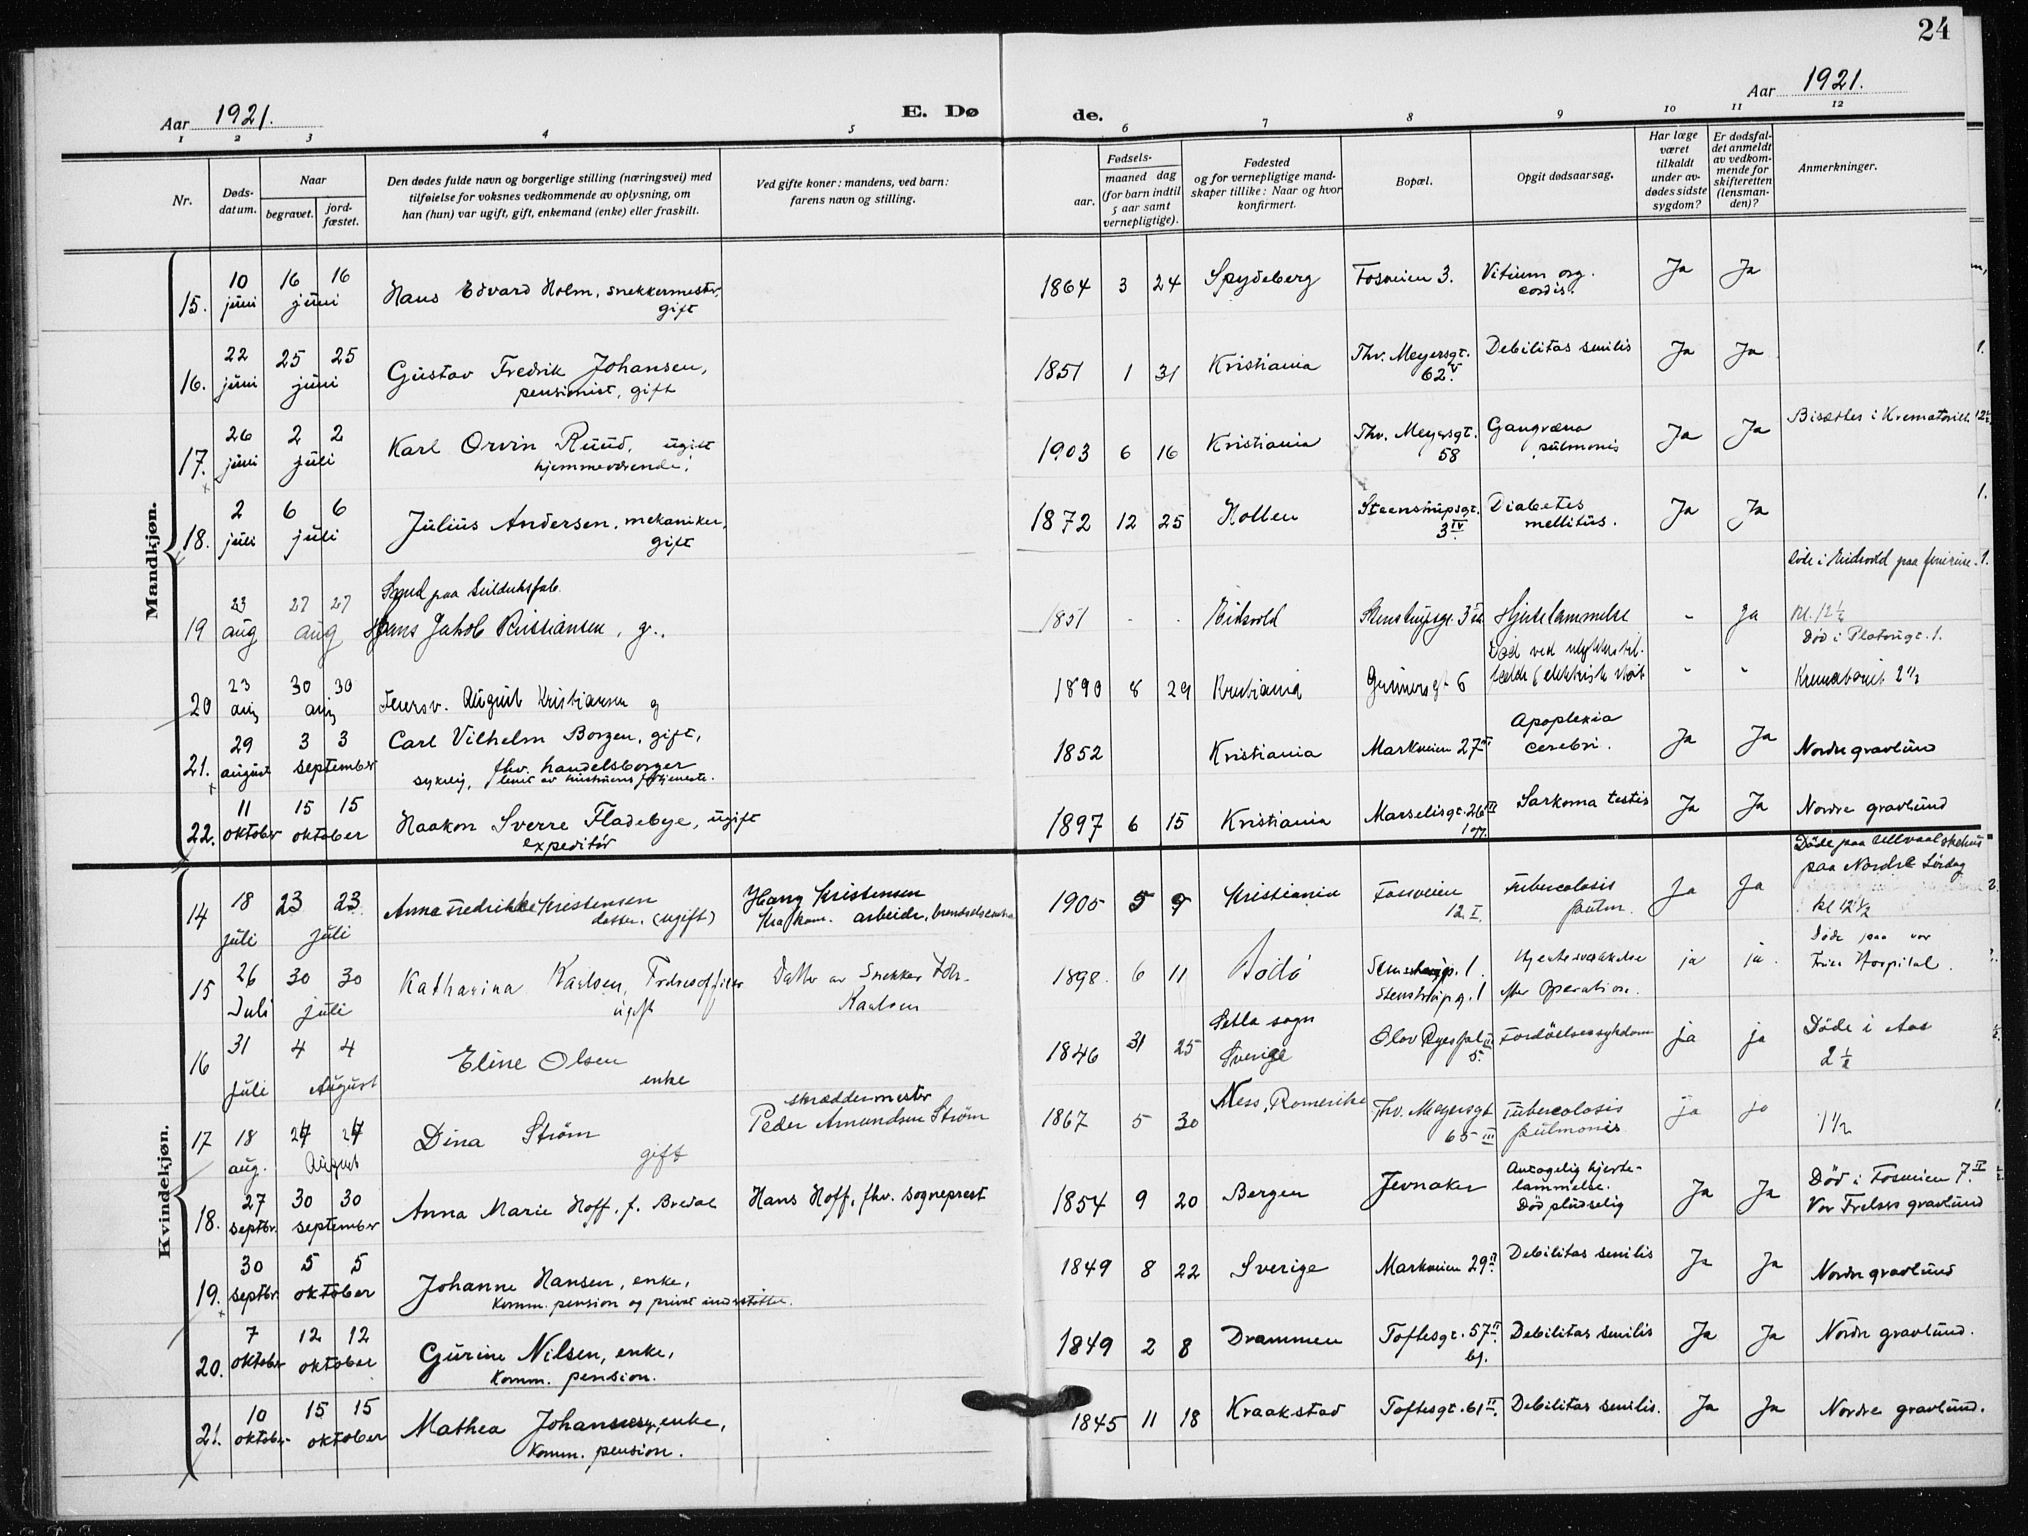 24
Aar 1921.
E. Dø
de.
Aar 1921.
1 2 3 4 5 6 7 8 9 10 11 12
Nr.
Døds-
datum.
Naar
begravet.
jord-
fæstet.
Den dødes fulde navn og borgerlige stilling (næringsvei) med
tilføielse for voksnes vedkommende av oplysning, om
han (hun) var ugift, gift, enkemand (enke) eller fraskilt.
Ved gifte koner: mandens, ved barn:
farens navn og stilling.
Fødsels-
aar.
maaned dag
(for barn indtil
5 aar samt
vernepligtige).
Fødested
og for vernepligtige mand-
skaper tillike: Naar og hvor
konfirmert.
Bopæl.
Opgit dødsaarsag.
Har læge
været
tilkaldt
under av-
dødes sidste
sygdom?
Er dødsfal-
det anmeldt
av vedkom-
mende for
skifteretten
(lensman-
den)?
Anmerkninger.
Mandkjøn.
15. 10 juni 16 16 juni Hans Edvard Holm, snekkermester,
gift
1864 3 24 Spydeberg Fosveien 3. Vitium org.
cordis. Ja Ja
16. 22 juni 25 25 juni Gustav Fredrik Johansen,
pensionist, gift
1851 1 31 Kristiania Thv. Meyersgt.
62 V. Debilitas senilis Ja Ja
17. 26 juni 2 2 juli Karl Orvin Ruud, ugift
hjemmeværende.
1903 6 16 Kristiania Thv. Meyersgt.
58 Gangræna
pulmonis Ja Ja Bisættes i Krematoriet 12½
18. 2 juli 6 6 juli Julius Andersen, mekaniker,
gift
1872 12 25 Steenstrupsgt.
3 IV. Diabetes
mellitus. Ja Ja
19 23 aug 27 27 aug
paa
Hans Jakob Kristiansen, g.
1851 Eidsvold Stenstrupsgt. 3 Hjertelammelse - Ja
Døde i Eidsvold paa
Kl. 12½
Død i 1.
20 23 aug 30 30 aug August Kristiansen g
1890 8 29 Kristiania Gunnersgt 6 Død ved ulykkestil-
fælde (elektrisk støt - - Krematoriet 2½
21. 29 august 3 3 september Carl Vilhelm Borgen, gift,
fhv. handelsborger
sykelig, levet av hustruens fortjeneste.
1852 Kristiania Markveien 27 III Apoplexia
cerebri. Ja Ja Nordre gravlund
22. 11 oktober 15 15 oktober Haakon Sverre Fladebye, ugift
expeditør
1897 6 15 Kristiania Marselisgt. 26 III Sarkoma testis Ja Ja Nordre gravlund
Kvindekjøn.
14 18 juli 23 23 juli Anna Fredrikke Kristensen
datter (ugift)
Hans Kristensen
arbeider,
1905 5 9 Kristiania Fossveien
12. I. Tuberculosis
pulm. Ja Ja Døde paa Ullevaal sykehus
paa Nordre Lørdag
Kl 12½
15 26 Juli 30 30 juli Katharina Karlsen, Frelsesoffiser
ugift
Datter av Snekker Joh.
Karlsen
1898. 6 11 Bodø
Stenstrupg. 1 Hjertesvækkelse
efter Operation. ja ja. Døde paa vor
Frues Hospital.
16 31 juli 4 4 August Eline Olsen
enke
1846 31 25 sogn
Sverige Olav Ryes pl II
5. Fordøielsessykdom ja ja Døde i Aas
2½
17 18 aug. 24 24 August Dina Strøm
gift
skræddermester
Peder Amundsen Strøm
1867 5 30 Ness, Romerike Thv. Meyersgt
65 III Tuberculosis
pulmonis ja ja 1½
18. 27 septbr. 30 30 september Anna Marie Hoff, f. Bredal
Hans Hoff, fhv. sogneprest
1854 9 20 Bergen Jevnaker Antagelig hjerte-
lammelse.
Død pludselig Ja Ja Død i Fosveien 7. II
Vor Frelsers gravlund
19. 30 septbr. 5 5 oktober Johanne Hansen, enke,
Komm. pension og privat understøttet.
1849 8 22 Sverige Markveien 29 II. Debilitas senilis Ja Ja Nordre gravlund
20. 7 oktober 12 12 oktober Gurine Nilsen, enke,
Komm. pension.
1849 2 8 Drammen Toftesgt. 57 II.
bg. Debilitas senilis Ja Ja Nordre gravlund.
21. 10 oktober 15 15 oktober Mathea Johansen, enke,
Komm. pension.
1845 11 18 Kraakstad Toftesgt. 61 II. Debilitas senilis. Ja Ja Nordre gravlund.